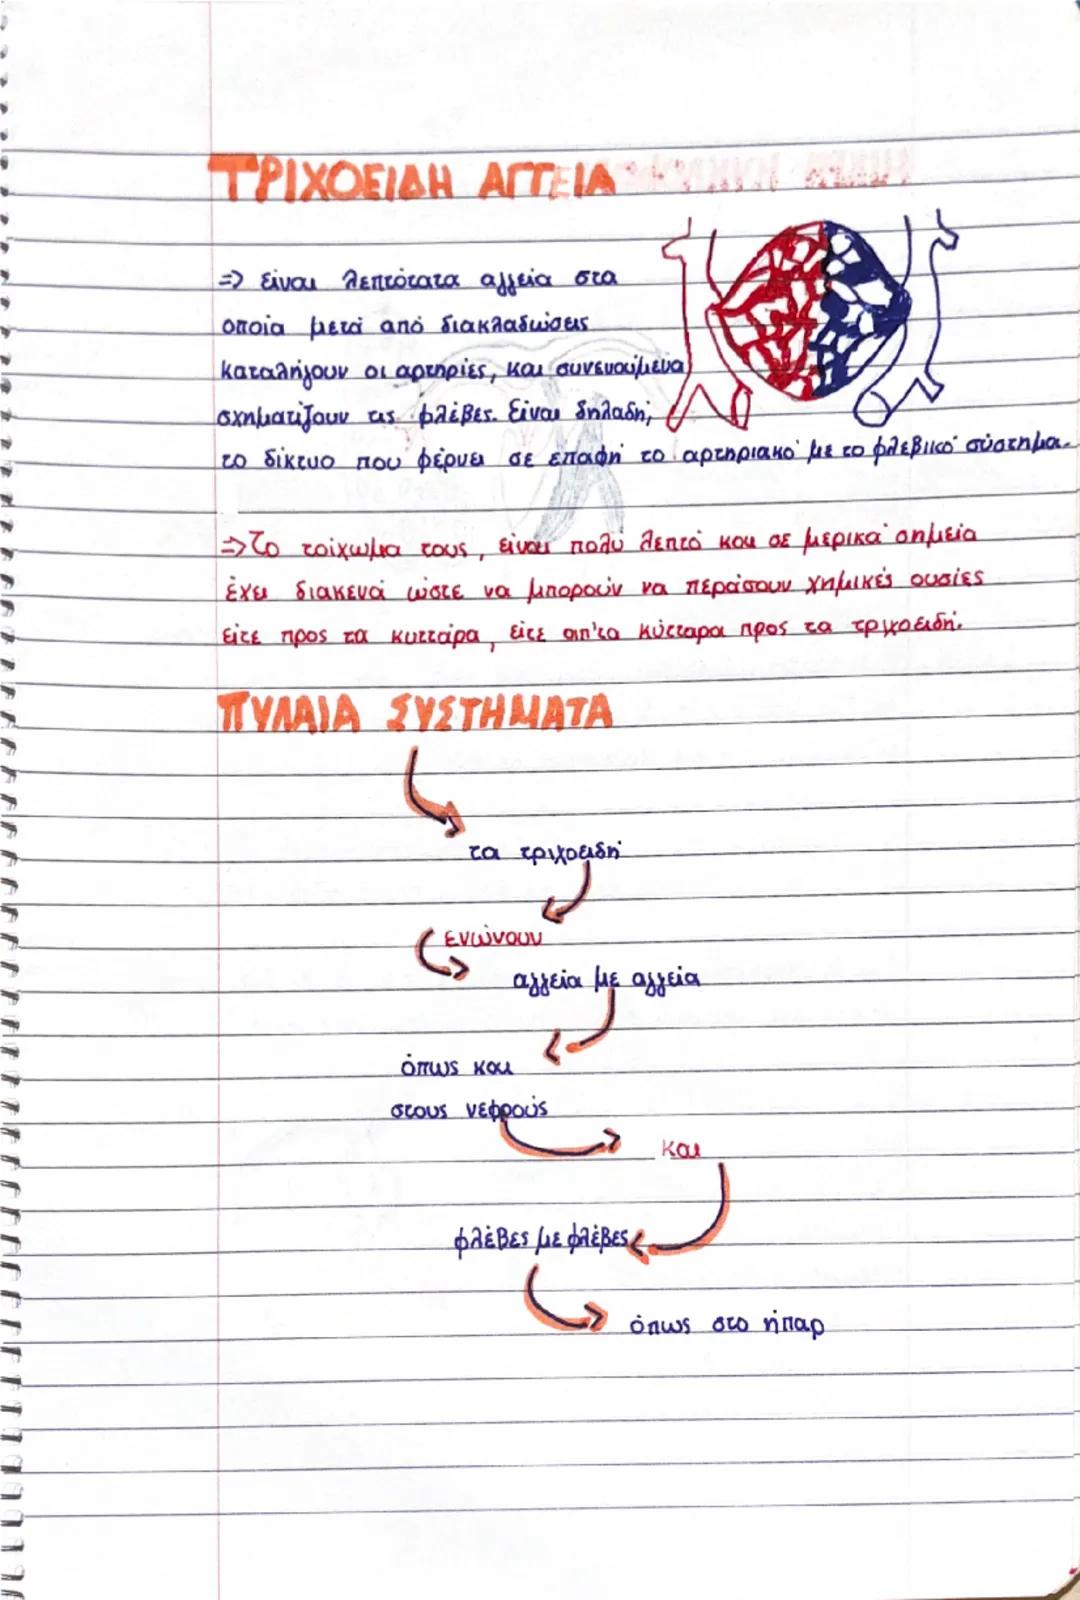 ΤΡΙΧΟΕΙΔΗ ΑΓΓΕΙΑ
=> είναι λεπτότατα αγγεία στα
οποία μετά από διακλαδώσεις
καταλήγουν οι αρτηρίες, και συνενούμενα
σχηματίζουν τις φλέβες. Είναι δηλαδή,
το δίκτυο που φέρνει σε επαφή το αρτηριακό με το φλεβικό σύστημα.
=> Το τοίχωμα τους, είναι πολύ λεπτό και σε μερικά σημεία
έχει διακενά ώστε να μπορούν να περάσουν χημικές ουσίες
είτε προς τα κυττάρα, είτε απ'τα κύτταρα προς τα τριχοειδή.
ΠΥΛΑΙΑ ΣΥΣΤΗΜΑΤΑ
τα τριχοειδή
ενώνουν
αγγεία με αγγεία
όπως και
στους νεφρούς
και
φλέβες με φλέβες
όπως στο ήπαρ